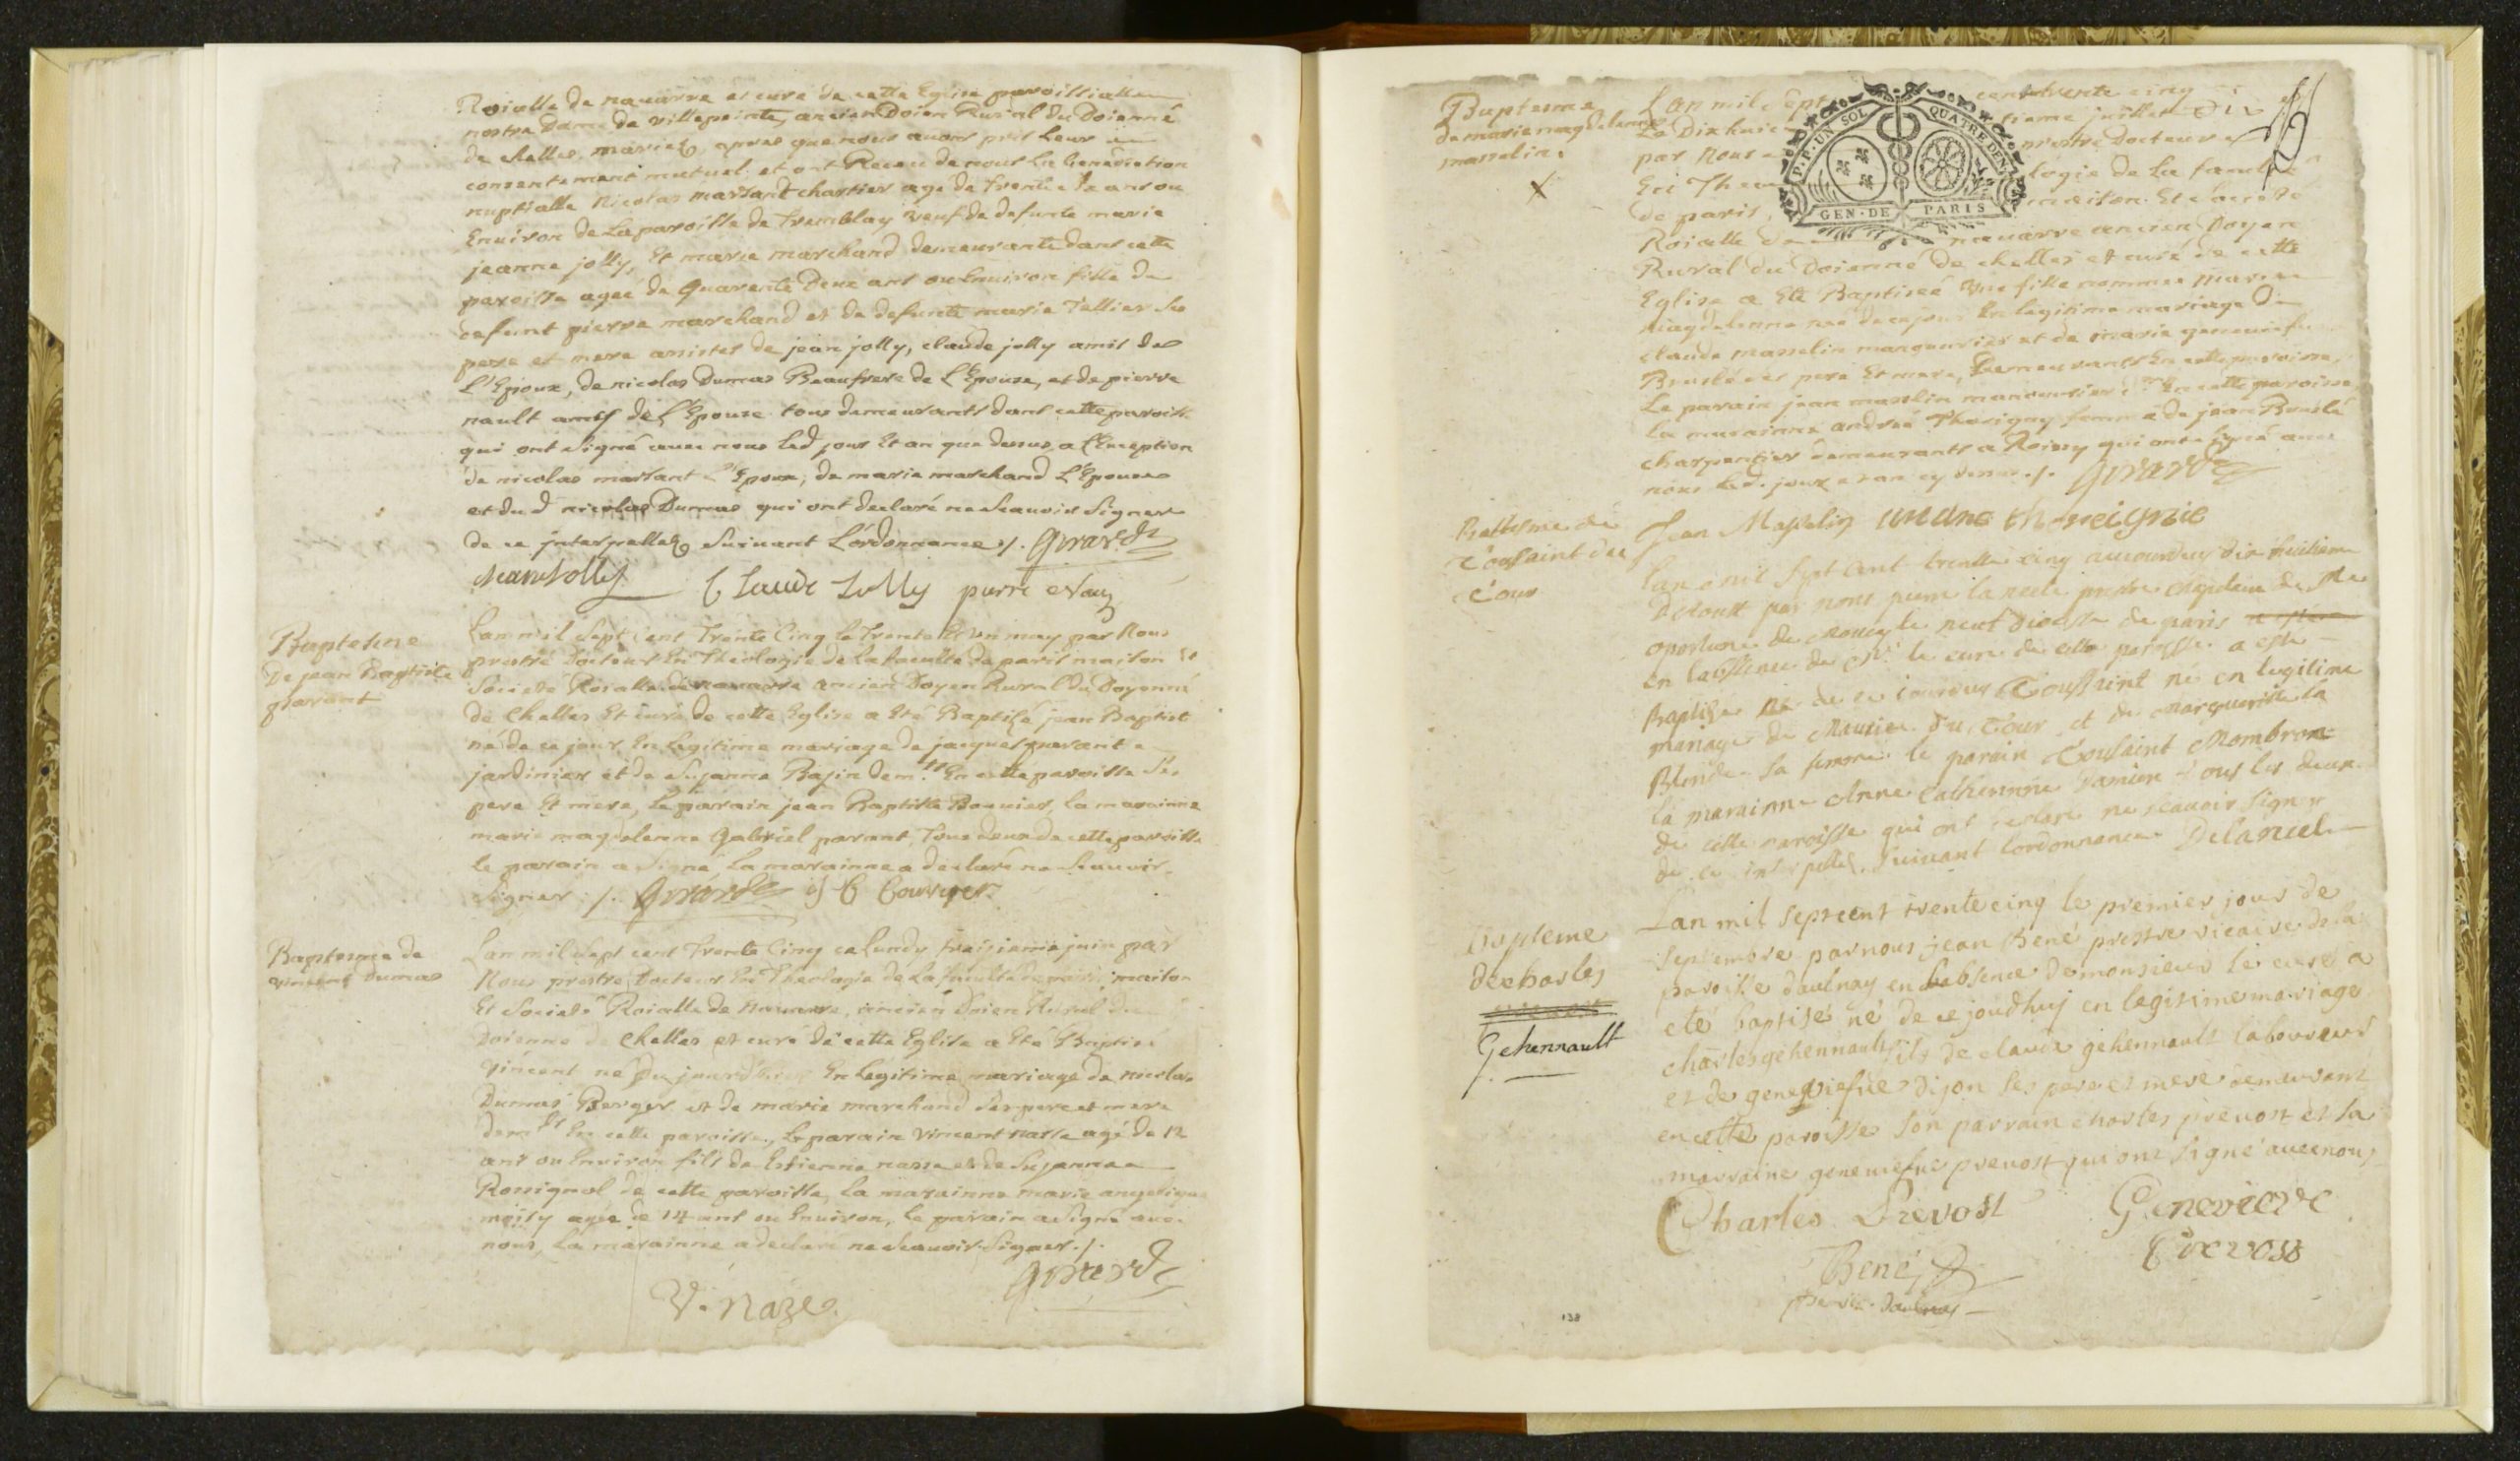 Roialle de navarre et curé de cette Eglise paroissialle
nostre Dame de villepeinte, ancien Doien Rural du Doienné
de chelles, mariez, apres que nous avons pris leur
consentement mutuel et ont Receu de nous La benediction
nuptialle Nicolas martant chartier agé de trente ans ou
Environ de La paroisse de Tremblay veuf de defunte marie
jeanne jolly, Et marie marchand demeurante dans cette
paroisse agée de Quarente Deux ans ou Environ fille de
defunt pierre marchand et de defunte marie Tellier ses
pere et mere assistes de jean jolly, claude jolly amis de
L'Epoux, de nicolas Dumas Beaufrere de L'Epouse, et de pierre
nault amis de L'Epouse tous demeurants dans cette paroisse
qui ont signé avec nous led jour Et an que dessus, a l'Exception
de nicolas martant L'Epoux, de marie marchand L'Epouse
et du d nicolas Dumas qui ont declaré ne sçauoir Signer
de ce interpellez suivant L'ordonnance ./. Girard
Jean Jolly Claude Jolly pierre
Baptesme
De jean Baptiste
parant
Lan mil sept cent Trente Cinq le Trente Et un may par Nous
prestre Docteur En Theologie de La faculté de paris maison Et
Societé Roialle de navarre ancien Doyen Rural du Doyenné
de Chelles Et curé de cette Eglise a Eté Baptisé jean Baptist
né de ce jour En Legitime mariage de jacques parant
jardinier et de Suzanne Bazin dem.ts En cette paroisse Ses
pere Et mere, Le parain jean Baptiste, la marainne
marie magdelenne Gabriel parant, Tous deux de cette paroisse
le parain a Signé La marainne a declaré ne sçauoir
Signer ./. Girard
Baptesme de
vincent Dumas
Lan mil sept cent Trente Cinq ce Lundy troisieme juin par
Nous prestre Docteur En Theologie de La faculté de paris, maison
Et Societé Roialle de Navarre, ancien Doien Rural du
Doienné de Chelles et curé de cette Eglise a Eté Baptisé
Vincent né du jourd'huy En Legitime mariage de nicolas
Dumas Berger et de marie marchand ses pere et mere
demts En cette paroisse, Le parain Vincent nasse agé de 12
ans ou Environ fils de Estienne nasse et de Suzanne
Rossignol de cette paroisse, La marainne marie angelique
agée de 14 ans ou Environ, le parain a signé avec
nous, La marainne a declaré ne sçauoir Signer ./.
Girard
V. Naze
Baptesme
de marie magdelenne
masselin.
Lan mil sept cent trente cinq
Le Dixhuictieme juillet
par Nous prestre Docteur
En Theologie de La faculté
de paris, maison Et Societé
Roialle de navarre ancien Doyen
Rural du Doienné de chelles et curé de cette
Eglise a Eté Baptiseé Une fille nommeé Marie
magdelenne neé de ce jour En legitime mariage De
claude masselin manouvrier et de marie geneviefve
Bruslé ses pere Et mere, Demeurants En cette paroisse,
Le parain jean masselin manouvrier En cette paroisse
La marainne andreé Thorigny femme de jean Bruslé
charpentier demeurants a Roissy qui ont signé avec
nous led. jour et an cy dessus ./. Girard
Jean Masselin
P.P. UN SOL QUATRE DEN.
GEN. DE PARIS
Battesme de
Toussaint du
Tour
Lan mil sept cent trente cinq aujourduy dix huitieme
D'Aoust par nous pierre prestre chapelain de Ste
oportune de Moucy le neuf Diocese de paris
en labssence de Mr le curé de cette paroisse a esté
Baptisé né de ce jourduy Toussaint né en legitime
mariage de Maurice Du Tour et de Marguerite la
Blonde sa femme le parain Toussaint Mombron
la marainne Anne Catherinne tous les deux
de cette paroisse qui ont declaré ne scauoir signer
de ce interpellez suivant lordonnance Delaruel
Bapteme
decharles
Gehennault
Lan mil septcent trente cinq le premier jour de
septembre parnous jean Bené prestre vicaire de la
paroisse daulnay en labsence de monsieur le curé a
eté baptisé né de ce joudhuy en legitime mariage
charles gehennault fils de claude gehennault laboureur
et de geneviefve dijon ses pere et mere demeurant
en cette paroisse son parrain charles prevost et sa
marraine geneviefve prevost qui ont signé avec nous
Charles Prevost Genevieve
Prevost
Bené
138